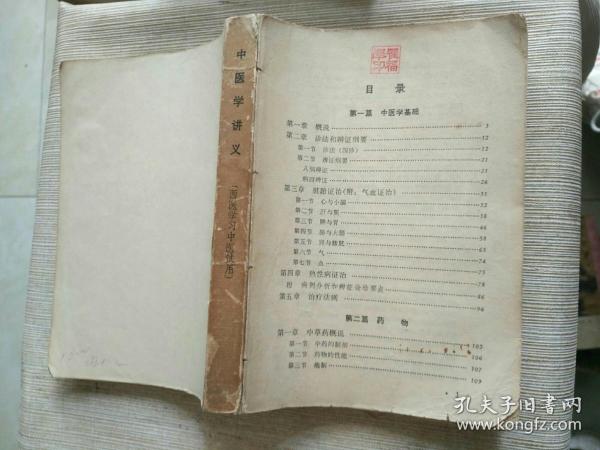 中医学讲义
(西医学习中医使用)
目录
第一篇 中医学基础
第一章 概说 3
第二章 诊法和辨证纲要 12
第一节 诊法(四诊) 12
第二节 辨证纲要 21
八纲辨证 21
病因辨证
第三章 脏腑证治(附:气血证治) 31
第一节 心与小肠
第二节 肝与胆
第三节 脾与胃
第四节 肺与大肠
第五节 肾与膀胱
第六节 气
第七节 血
第四章 热性病证治
附 病例分析和辨证论治要点 86
第五章 治疗法则 96
第二篇 药物
第一章 中草药概说 105
第一节 中药的制剂
第二节 药物的性能 106
第三节 炮制 107
109
孔夫子旧书网
www.kongfz.com